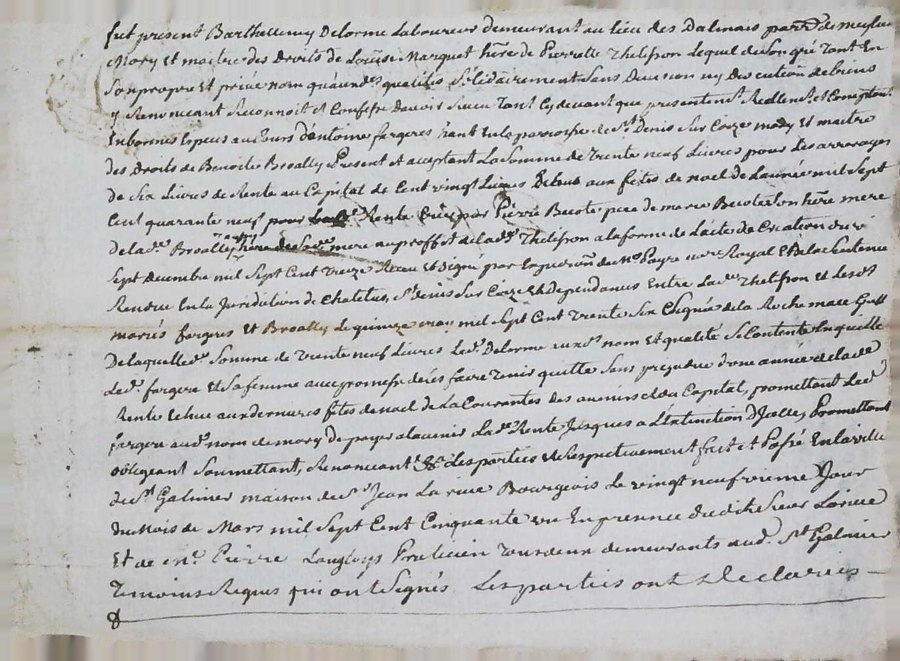 fut present Barthellemy Delorme Laboureur demeurant au lieu des Dalmais parr.e de meylieu
Mary et maitre des Droits de Louise Marquet here de Pierrotte Thelisson Lequel de son gré Tant En
Son propre et privé nom qu'aud.es qualités Solidairement Sans Division ny Discution de biens
y Renonceant Reconnoit et Confesse Davoir Receu Tant Cy devant que presentem.t Redlem.t et Comptant
En bonnes Especes au Cours d'antoine fargeres h'ant En la parroisse de St. Denis Sur Coize mary et maitre
des Droits de Benoite Broally Present et acceptant La Somme de Trente neuf Livres pour Les arrerages
de Six Livres de Rente au Capital de Cent vingt Livres Echeus aux fêtes de noel de L'année mil Sept
Cent quarante neuf pour Rente Créée par Pierre Besote pere de marie Besote Son here mere
de la d.e Broally here de Sad.e mere au proffit de la d.e Thelisson a la forme de L'acte de Création du
Sept decembre mil Sept Cent Treze Receu Et Signé par Me Payre no.re Royal Et de la Sentence
Rendue En la Juridiction de Chatelus, St. Denis Sur Coize Et Dependances Entre La d.e Thelisson et lesd.s
mariés fargeres Et Broally Le quinze may mil Sept Cent Trente Six Signée de la Roche mace Greff.
De laquelle d.e Somme de Trente neuf Livres Led. Delorme aux d.s nom Et qualité Se Contente En quitte
Led. fargere Et Sa femme avec promesse de les faire Tenir quitte Sans prejudice d'une année de la d.e
Rente Echeue aux dernieres fêtes de noel de La Courante des avenirs et du Capital, promettant Led.
fargere aud. nom de mary de payer a L'avenir La d.e Rente Jusques a L'Extinction D'Jcelle, Promettant
obligeant Soumettant, Renonceant &c Les parties Respectivement fait Et Passé En la ville
de St. Galmier maison de Sr. Jean La rive Bourgeois Le vingt neufvieme Jour
Du Mois de Mars mil Sept Cent Cinquante un En presence dudit Sieur Larive
Et de Me. Pierre Langloys Praticien Tous deux demeurants aud. St Galmier
Temoins Requis qui ont Signés Les parties ont Declarées